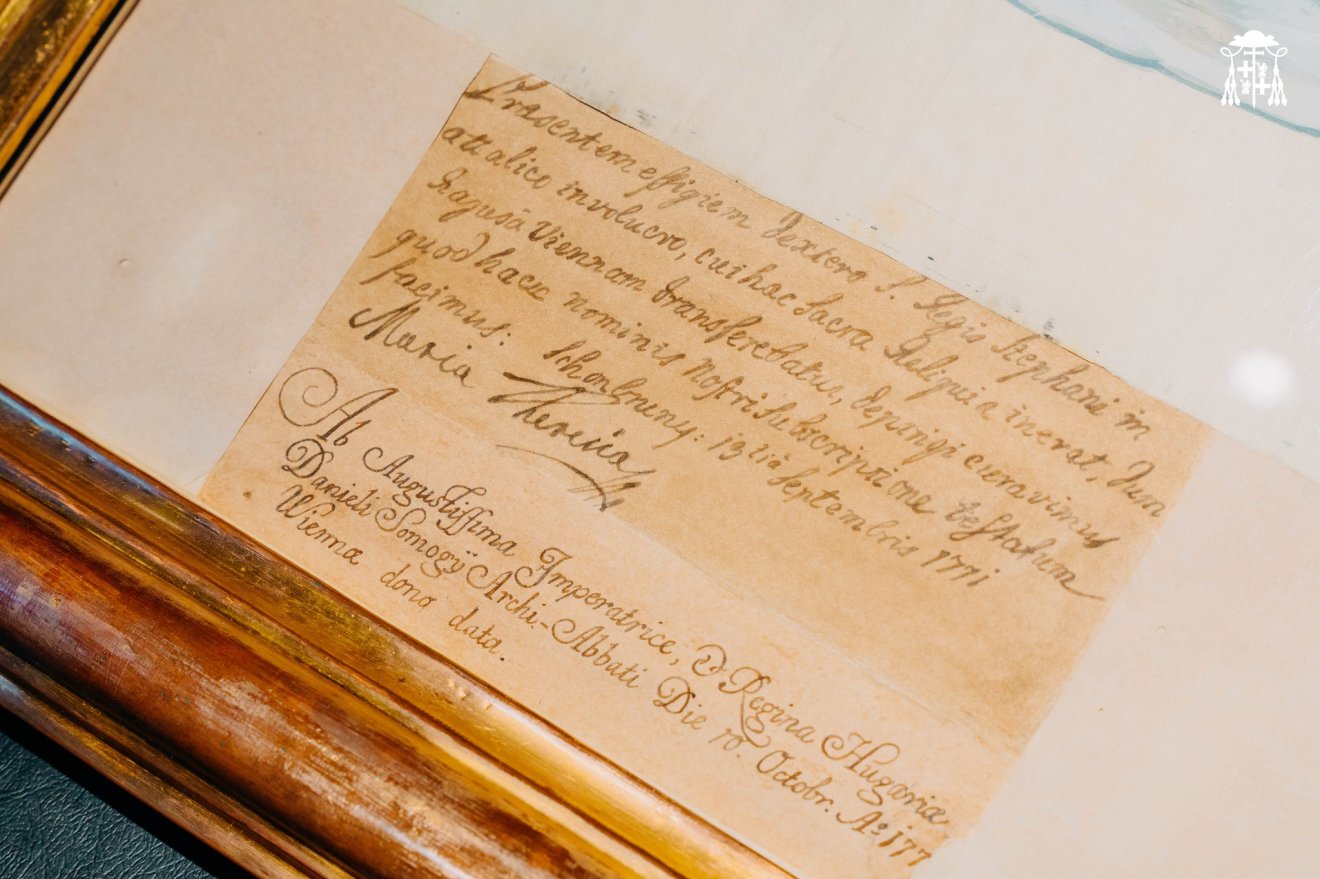 Praesentem effigiem dexterae S. Regis Stephani in
attalico involucro, cui haec Sacra Reliquia inerat, dum
Ragusâ Viennam transferebatur, depingi curavimus
quod hacce nominis Nostri Subscriptione testatum
facimus: Schonbruny: 13tiâ Septembris 1771
Maria Theresia
Ab Augustissima Imperatrice, & Regina Hugariae
Danieli Somogÿ Archi-Abbati Die 10. Octobr. Aº 177
Viennae dono data.